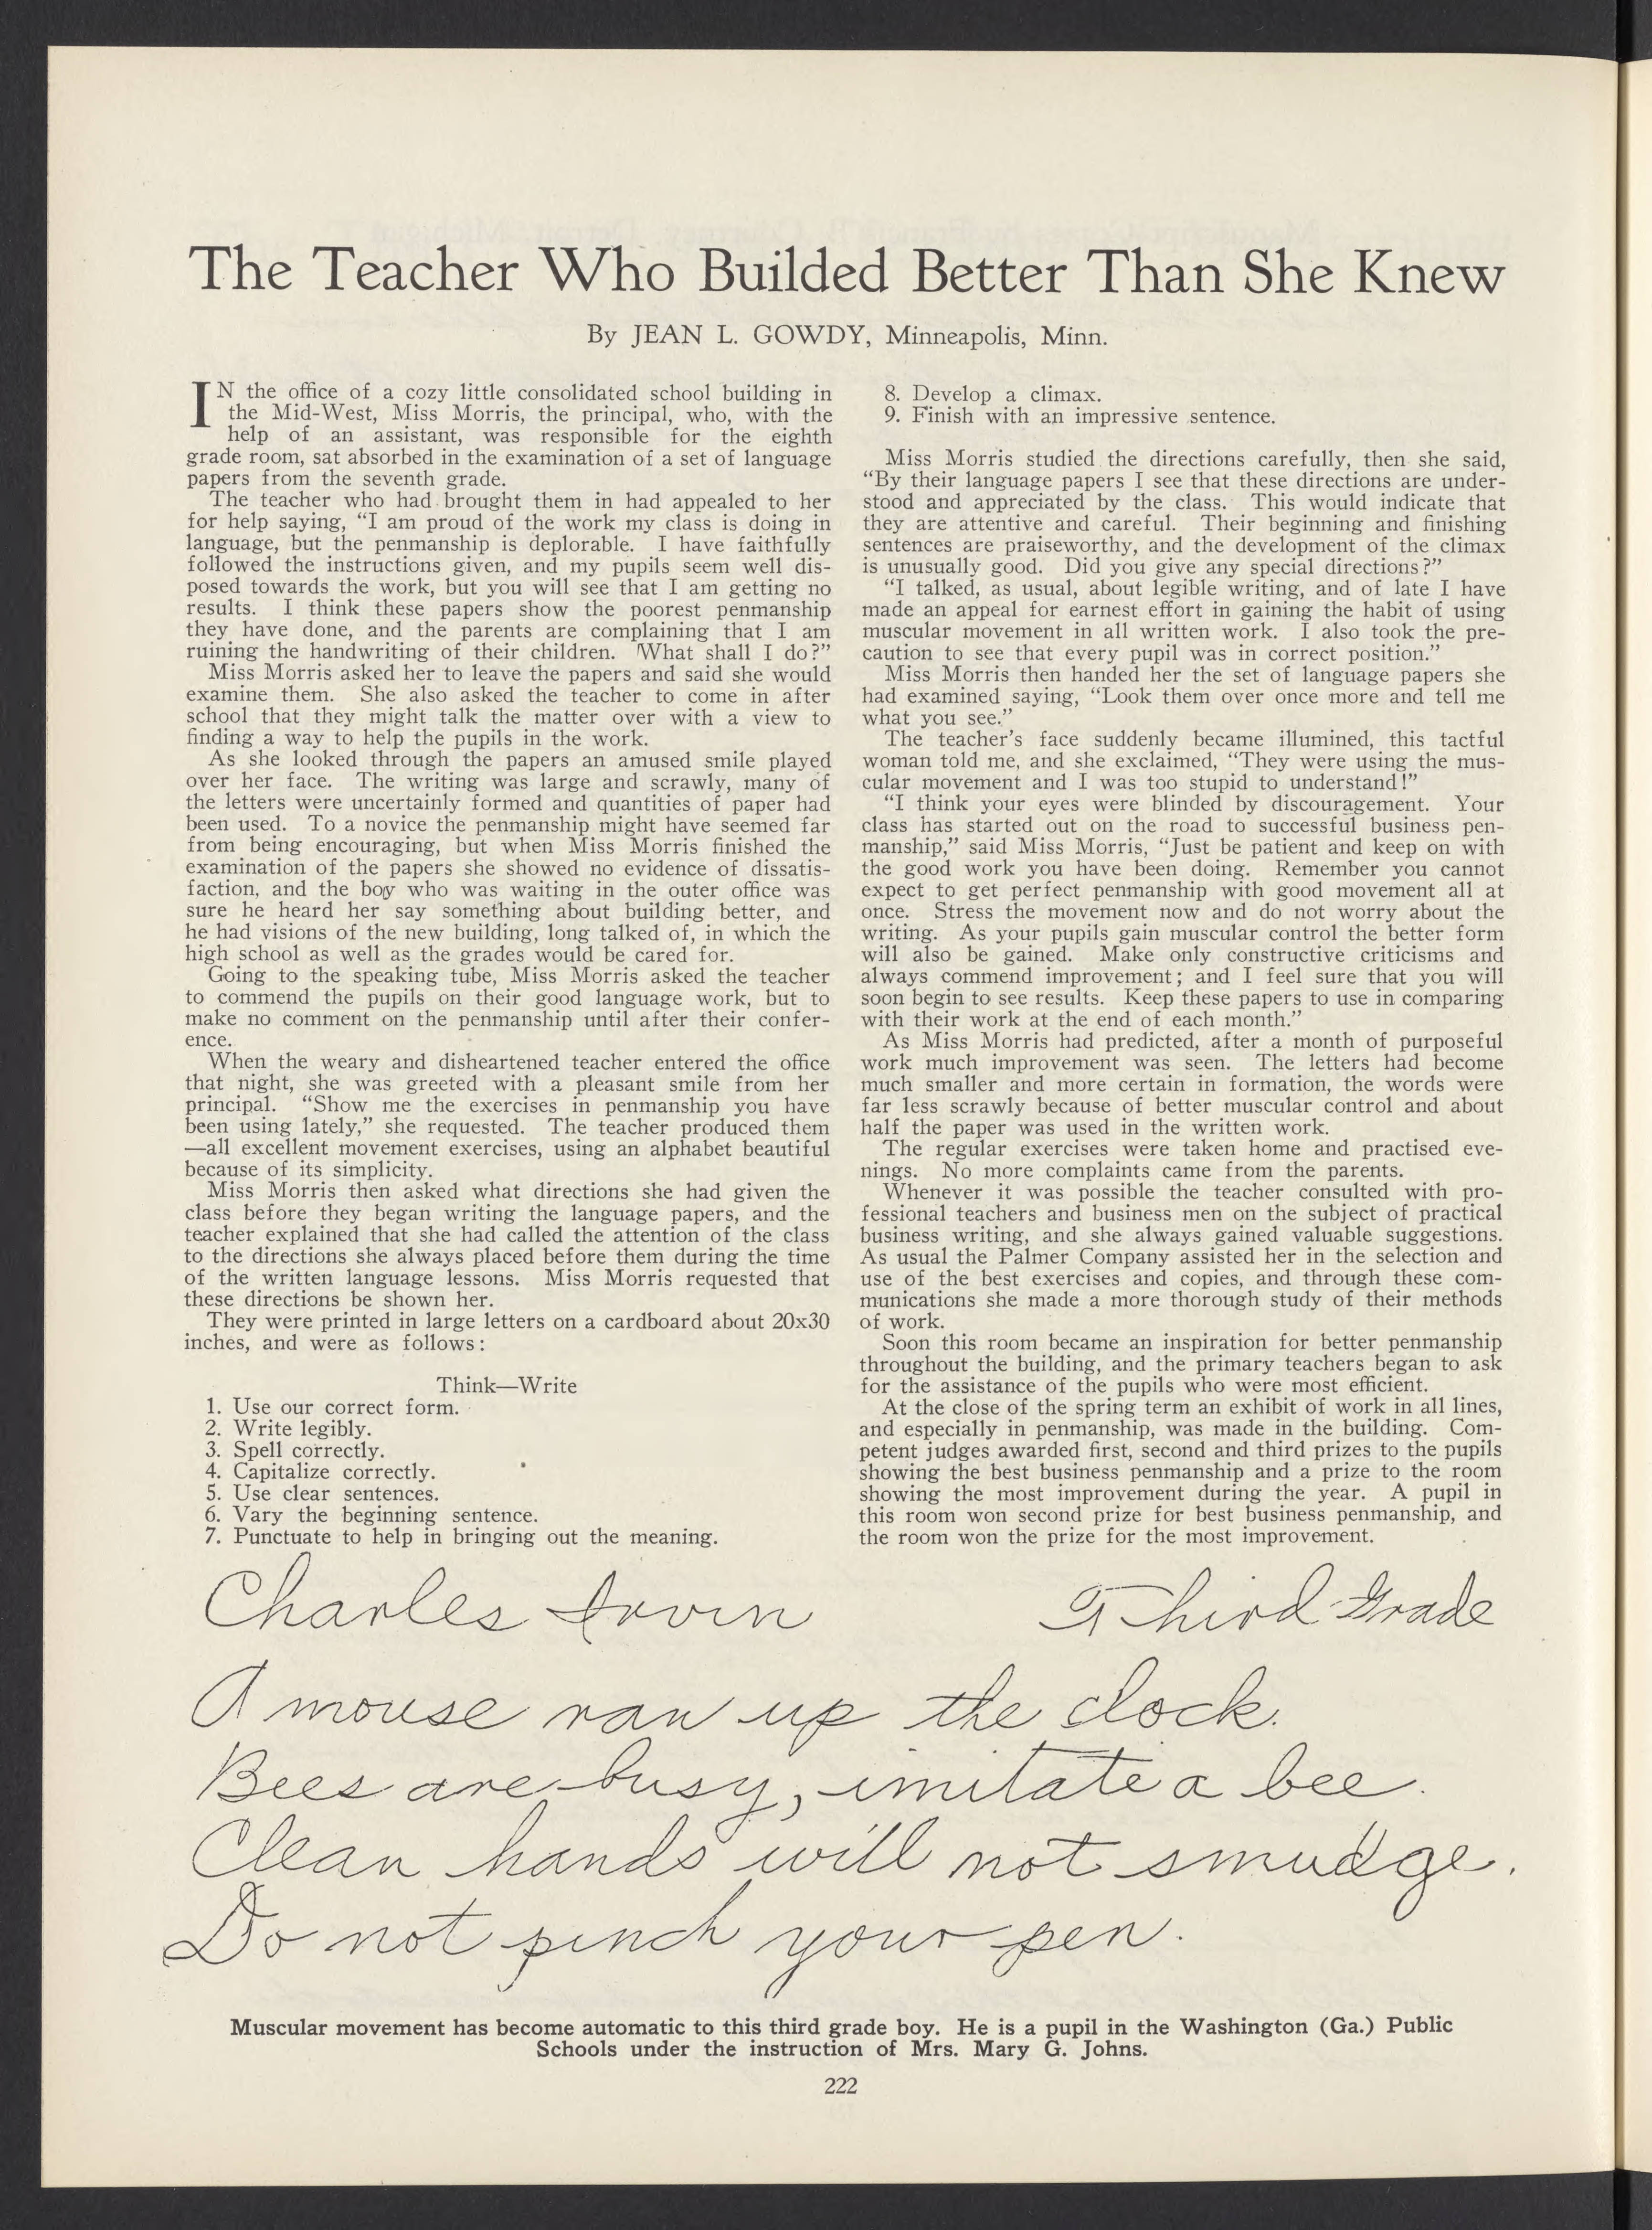 The Teacher Who Builded Better Than She Knew
By JEAN L. GOWDY, Minneapolis, Minn.
IN the office of a cozy little consolidated school building in
the Mid-West, Miss Morris, the principal, who, with the
help of an assistant, was responsible for the eighth
grade room, sat absorbed in the examination of a set of language
papers from the seventh grade.
The teacher who had brought them in had appealed to her
for help saying, “I am proud of the work my class is doing in
language, but the penmanship is deplorable. I have faithfully
followed the instructions given, and my pupils seem well dis-
posed towards the work, but you will see that I am getting no
results. I think these papers show the poorest penmanship
they have done, and the parents are complaining that I am
ruining the handwriting of their children. 'What shall I do?”
Miss Morris asked her to leave the papers and said she would
examine them. She also asked the teacher to come in after
school that they might talk the matter over with a view to
finding a way to help the pupils in the work.
As she looked through the papers an amused smile played
over her face. The writing was large and scrawly, many of
the letters were uncertainly formed and quantities of paper had
been used. To a novice the penmanship might have seemed far
from being encouraging, but when Miss Morris finished the
examination of the papers she showed no evidence of dissatis-
faction, and the boy who was waiting in the outer office was
sure he heard her say something about building better, and
he had visions of the new building, long talked of, in which the
high school as well as the grades would be cared for.
Going to the speaking tube, Miss Morris asked the teacher
to commend the pupils on their good language work, but to
make no comment on the penmanship until after their confer-
ence.
When the weary and disheartened teacher entered the office
that night, she was greeted with a pleasant smile from her
principal. “Show me the exercises in penmanship you have
been using lately,” she requested. The teacher produced them
—all excellent movement exercises, using an alphabet beautiful
because of its simplicity.
Miss Morris then asked what directions she had given the
class before they began writing the language papers, and the
teacher explained that she had called the attention of the class
to the directions she always placed before them during the time
of the written language lessons. Miss Morris requested that
these directions be shown her.
They were printed in large letters on a cardboard about 20x30
inches, and were as follows:
Think—Write
1. Use our correct form.
2. Write legibly.
3. Spell correctly.
4. Capitalize correctly.
5. Use clear sentences.
6. Vary the beginning sentence.
7. Punctuate to help in bringing out the meaning.
8. Develop a climax.
9. Finish with an impressive sentence.
Miss Morris studied the directions carefully, then she said,
“By their language papers I see that these directions are under-
stood and appreciated by the class. This would indicate that
they are attentive and careful. Their beginning and finishing
sentences are praiseworthy, and the development of the climax
is unusually good. Did you give any special directions?”
“I talked, as usual, about legible writing, and of late I have
made an appeal for earnest effort in gaining the habit of using
muscular movement in all written work. I also took the pre-
caution to see that every pupil was in correct position.”
Miss Morris then handed her the set of language papers she
had examined saying, “Look them over once more and tell me
what you see.”
The teacher’s face suddenly became illumined, this tactful
woman told me, and she exclaimed, “They were using the mus-
cular movement and I was too stupid to understand!”
“I think your eyes were blinded by discouragement. Your
class has started out on the road to successful business pen-
manship,” said Miss Morris, “Just be patient and keep on with
the good work you have been doing. Remember you cannot
expect to get perfect penmanship with good movement all at
once. Stress the movement now and do not worry about the
writing. As your pupils gain muscular control the better form
will also be gained. Make only constructive criticisms and
always commend improvement; and I feel sure that you will
soon begin to see results. Keep these papers to use in comparing
with their work at the end of each month.”
As Miss Morris had predicted, after a month of purposeful
work much improvement was seen. The letters had become
much smaller and more certain in formation, the words were
far less scrawly because of better muscular control and about
half the paper was used in the written work.
The regular exercises were taken home and practised eve-
nings. No more complaints came from the parents.
Whenever it was possible the teacher consulted with pro-
fessional teachers and business men on the subject of practical
business writing, and she always gained valuable suggestions.
As usual the Palmer Company assisted her in the selection and
use of the best exercises and copies, and through these com-
munications she made a more thorough study of their methods
of work.
Soon this room became an inspiration for better penmanship
throughout the building, and the primary teachers began to ask
for the assistance of the pupils who were most efficient.
At the close of the spring term an exhibit of work in all lines,
and especially in penmanship, was made in the building. Com-
petent judges awarded first, second and third prizes to the pupils
showing the best business penmanship and a prize to the room
showing the most improvement during the year. A pupil in
this room won second prize for best business penmanship, and
the room won the prize for the most improvement.
Charles Irvin Third Grade
A mouse ran up the clock.
Bees are busy, imitate a bee.
Clean hands will not smudge.
Do not pinch your pen.
Muscular movement has become automatic to this third grade boy. He is a pupil in the Washington (Ga.) Public
Schools under the instruction of Mrs. Mary G. Johns.
222